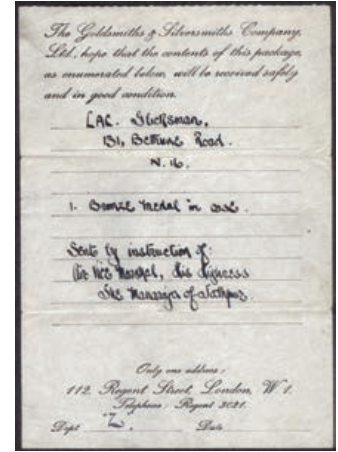 The Goldsmiths & Silversmiths Company,
Ltd., hope that the contents of this package,
as enumerated below, will be received safely
and in good condition.
LAC. Glicksman,
131, Bethune Road.
N. 16.
1. Bronze Medal in case.
Sent by instruction of:
Air Vice Marshal, His Highness
The Maharaja of
Only one address:
112, Regent Street, London, W.1.
Telephone: Regent 3021.
Dept Z. Date